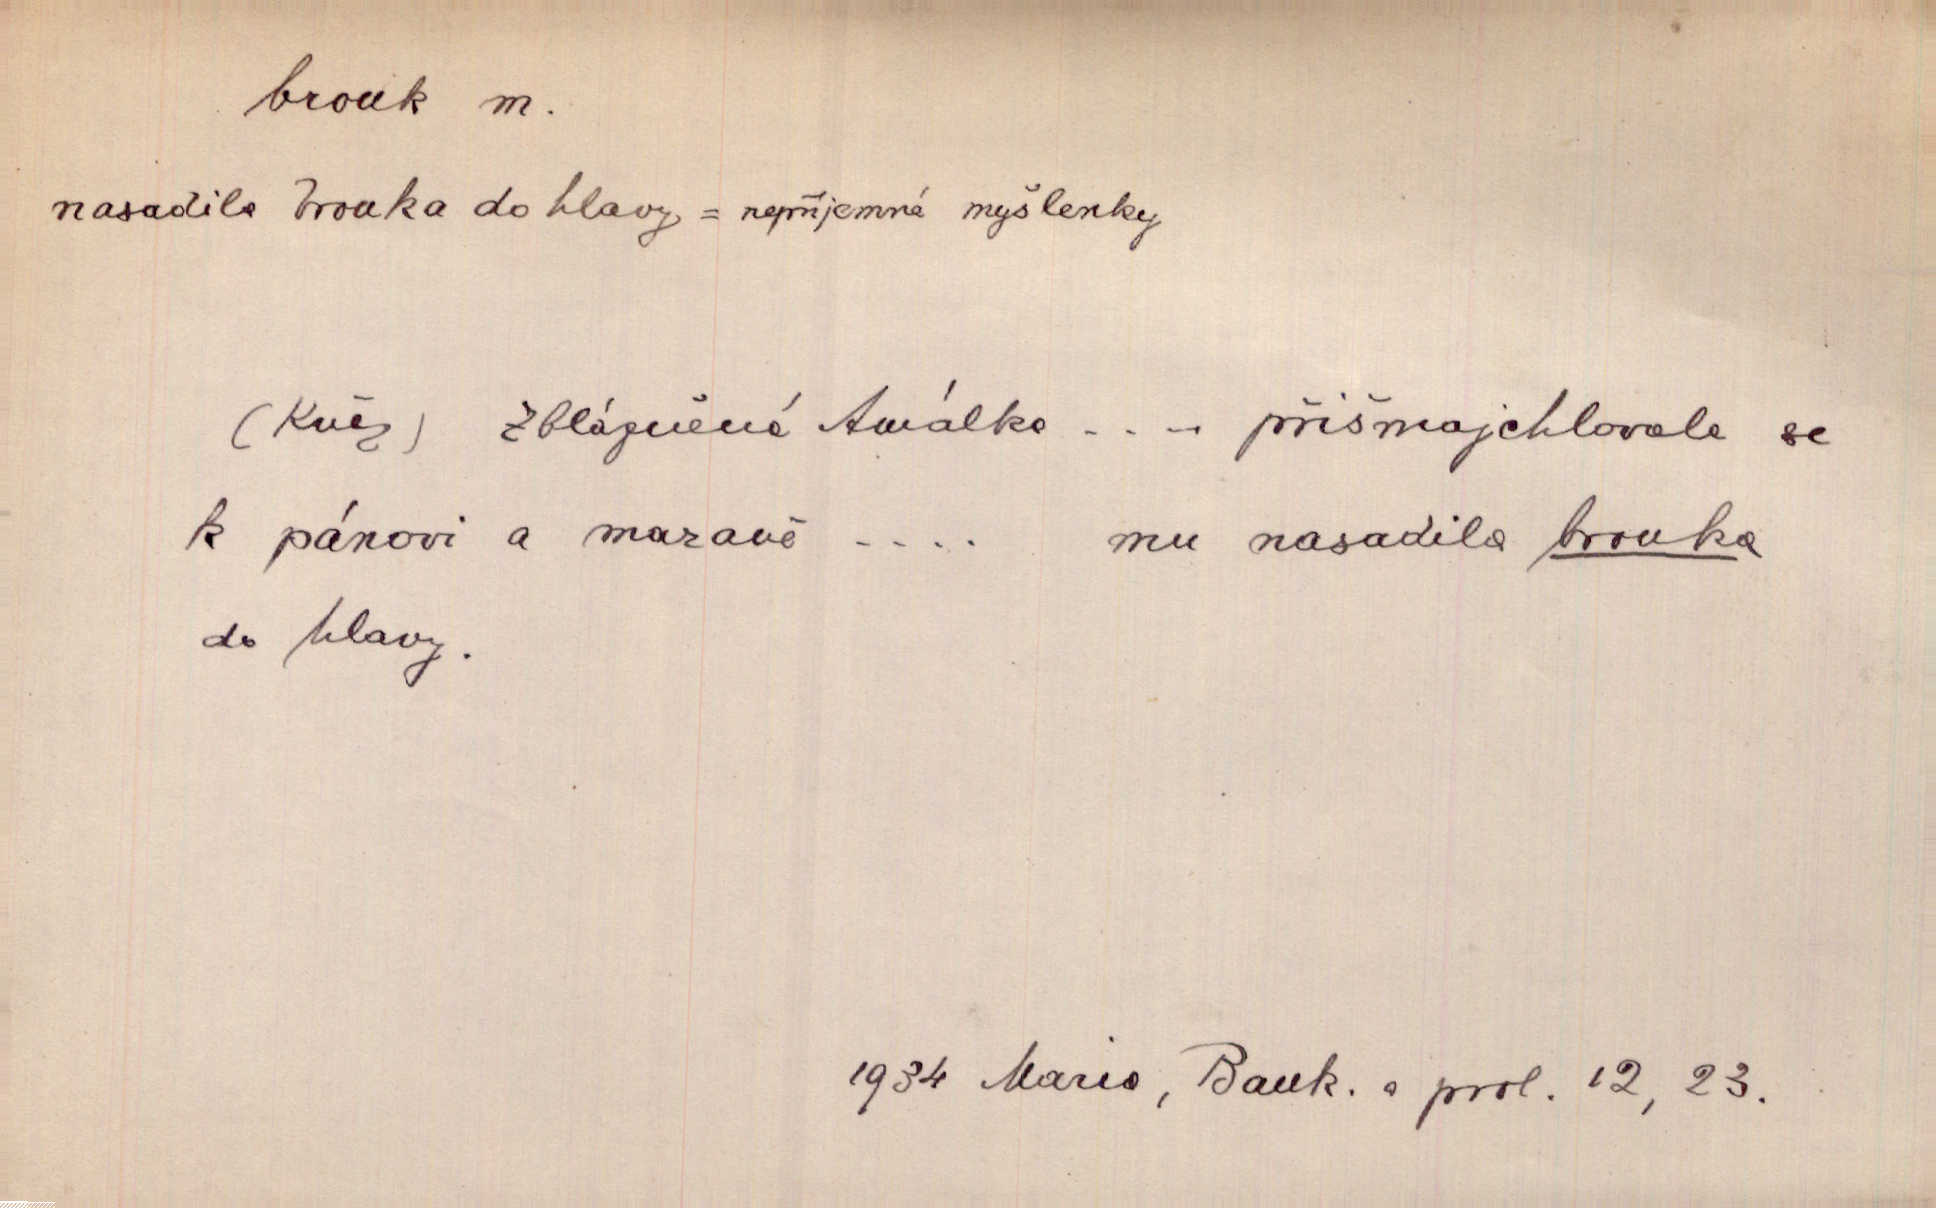 brouk m.
nasadila brouka do hlavy = nepříjemné myšlenky
(Kněz) Zblázněná Amálka .... přišmajchlovala se
k pánovi a mazaně .... mu nasadila brouka
do hlavy.
1934 Maria, Bank. a prol. 12, 23.